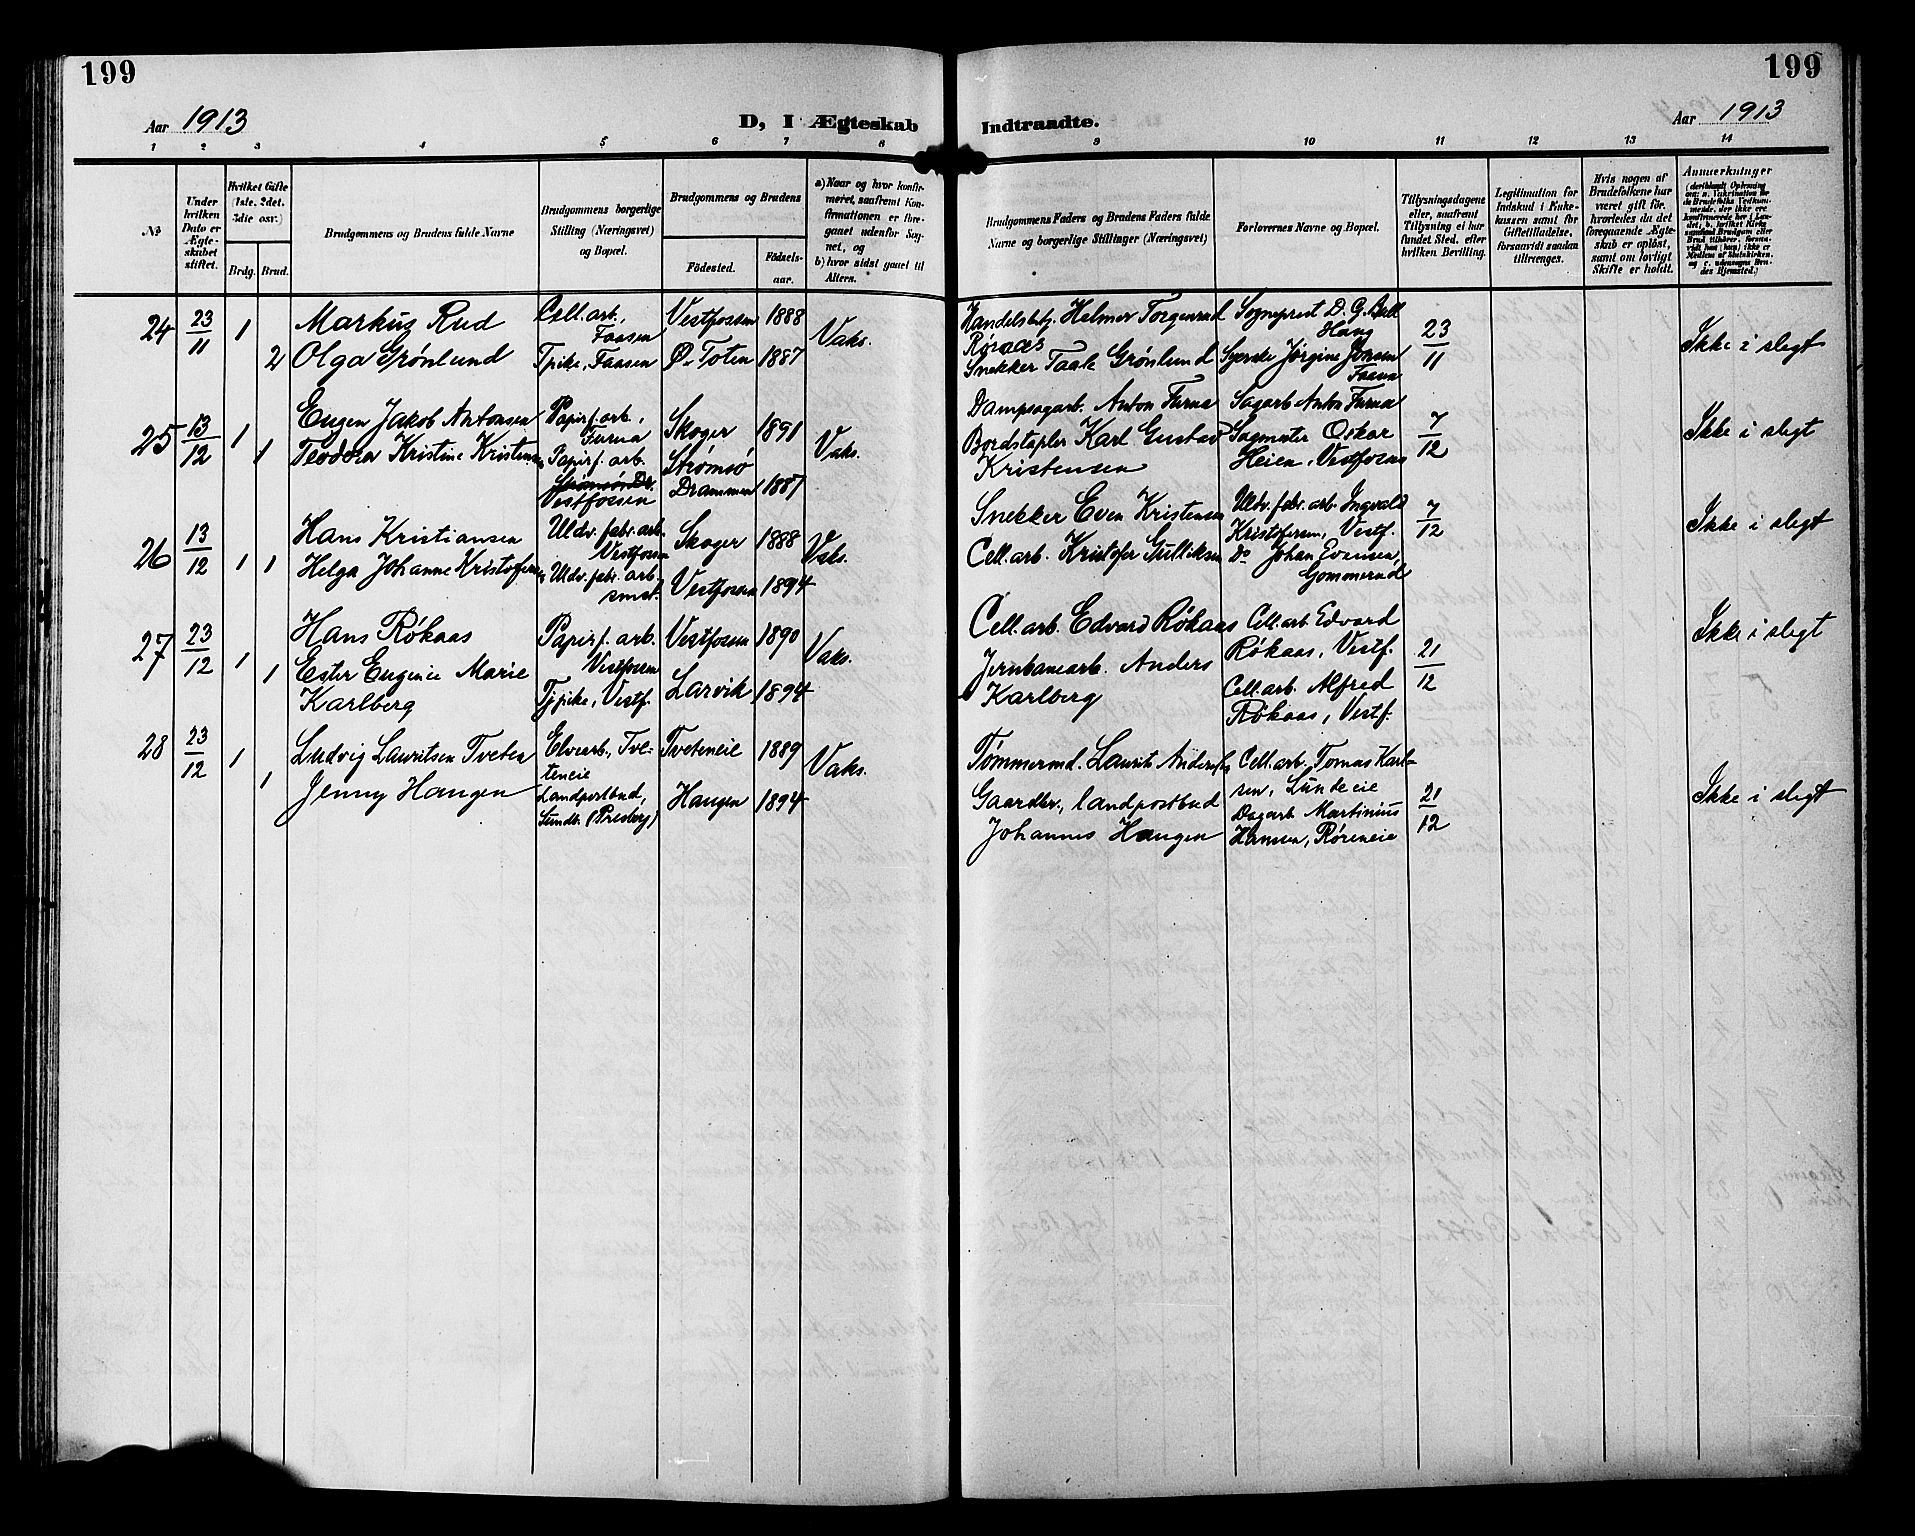 199
Aar 1913
D, I Ægteskab
1 2 3 4 5 6 7 8
№
Under hvilken Dato er Ægteskabet stiftet.
Hvilket Gifte (1ste, 2det, 3die osv.)
Brdg. Brud.
Brudgommens og Brudens fulde Navne
Brudgommens borgerlige Stilling (Næringsvei) og Bopæl.
Brudgommens og Brudens
Födested.
Födselsaar.
a) Naar og hvor konfirmeret, saafremt Konfirmationen er foregaaet udenfor Sognet, og
b) hvor sidst gaaet til Alters.
24 23/11 1 Markus Rud Cell.arb., Faasen Vestfossen 1888 Vaks.
2 Olga Grønlund Tpike, Faasen Ø-Toten 1887
25 13/12 1 Eugen Jakob Antonsen Papirf. arb., Furua Skoger 1891 Vaks.
1 Teodora Kristine Kristensen Papirf. arb. Strømsø Dr. Vestfossen Strømsø Drammen 1887
26 13/12 1 Hans Kristiansen Uldv. fabr. arb. Vestfossen Skoger 1888 Vaks.
1 Helga Johanne Kristofersen Uldv. fabr. arb. smst. Vestfossen 1894
27 23/12 1 Hans Røkaas Papirf. arb. Vestfossen Vestfossen 1890 Vaks.
1 Ester Eugenie Marie Karlberg Tjpike, Vestf. Larvik 1894
28 23/12 1 Ludvig Lauritsen Tveten Elvearb., Tveteneie Tveteneie 1889 Vaks.
1 Jenny Haugen Landpostbud, Sundb. (Presbg) Haugen 1894
199
Indtraadte.
Aar 1913
9 10 11 12 13 14
Brudgommens Faders og Brudens Faders fulde Navne og borgerlige Stillinger (Næringsvei)
Forlovernes Navne og Bopæl.
Tillysningsdagene eller, saafremt Tillysning ei har fundet Sted, efter hvilken Bevilling.
Legitimation for Indskud i Enkekassen samt for Giftetilladelse, forsaavidt saadan tiltrænges.
Hvis nogen af Brudefolkene har været gift för, hvorledes da det foregaaende Ægteskab er oplöst, samt om lovligt Skifte er holdt.
Anmærkninger
Handelsbetj. Helmer Torgersrud Røraas Sogneprest D. G. Bull Haug 23/11 Ikke i slegt
Snekker Taale Grønlund Syerske Jørgine Jonsen Faasen
Dampsagarb. Anton Furua Sagarb Anton Furua 7/12 Ikke i slegt
Bordstapler Karl Gustav Kristensen Sagmster Oskar Heien, Vestfossen
Snekker Even Kristensen Uldv. fabr. arb Ingvald Kristofersen, Vestf. 7/12 Ikke i slegt
Cell.arb. Kristofer Gulliksen Do Johan Evensen, Gommerud
Cell.arb. Edvard Røkaas Cell.arb Edvard Røkaas, Vestf. 21/12 Ikke i slegt
Jernbanearb. Anders Karlberg Cell.arb. Alfred Røkaas, Vestf.
Tømmermd. Laurits Andersen Cell.arb. Tomas Karlsen, Lundeeie 21/12 Ikke i slegt
Gaardbr., landpostbud Johannes Haugen Dagarb Martinius Hansen, Røreneie